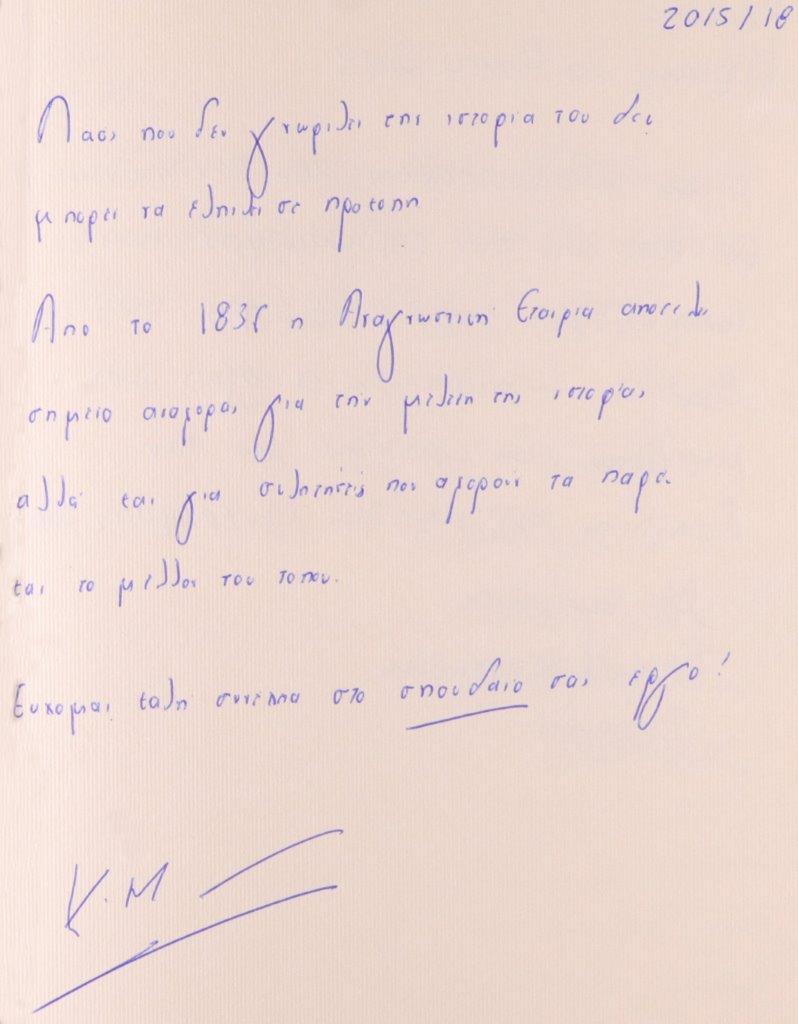 2015/18
Λαος που δεν γνωριζει την ιστορια του δεν
μπορει να ελπιζει σε προκοπη
Απο το 1836 η Αναγνωστικη Εταιρια αποτελει
σημειο αναφορας για την μελετη της ιστοριας
αλλα και για συζητησεις που αφορουν τα παρον
και το μελλον του τοπου.
Ευχομαι καλη συνεχεια στο σπουδαιο σας εργο!
Κ.Μ